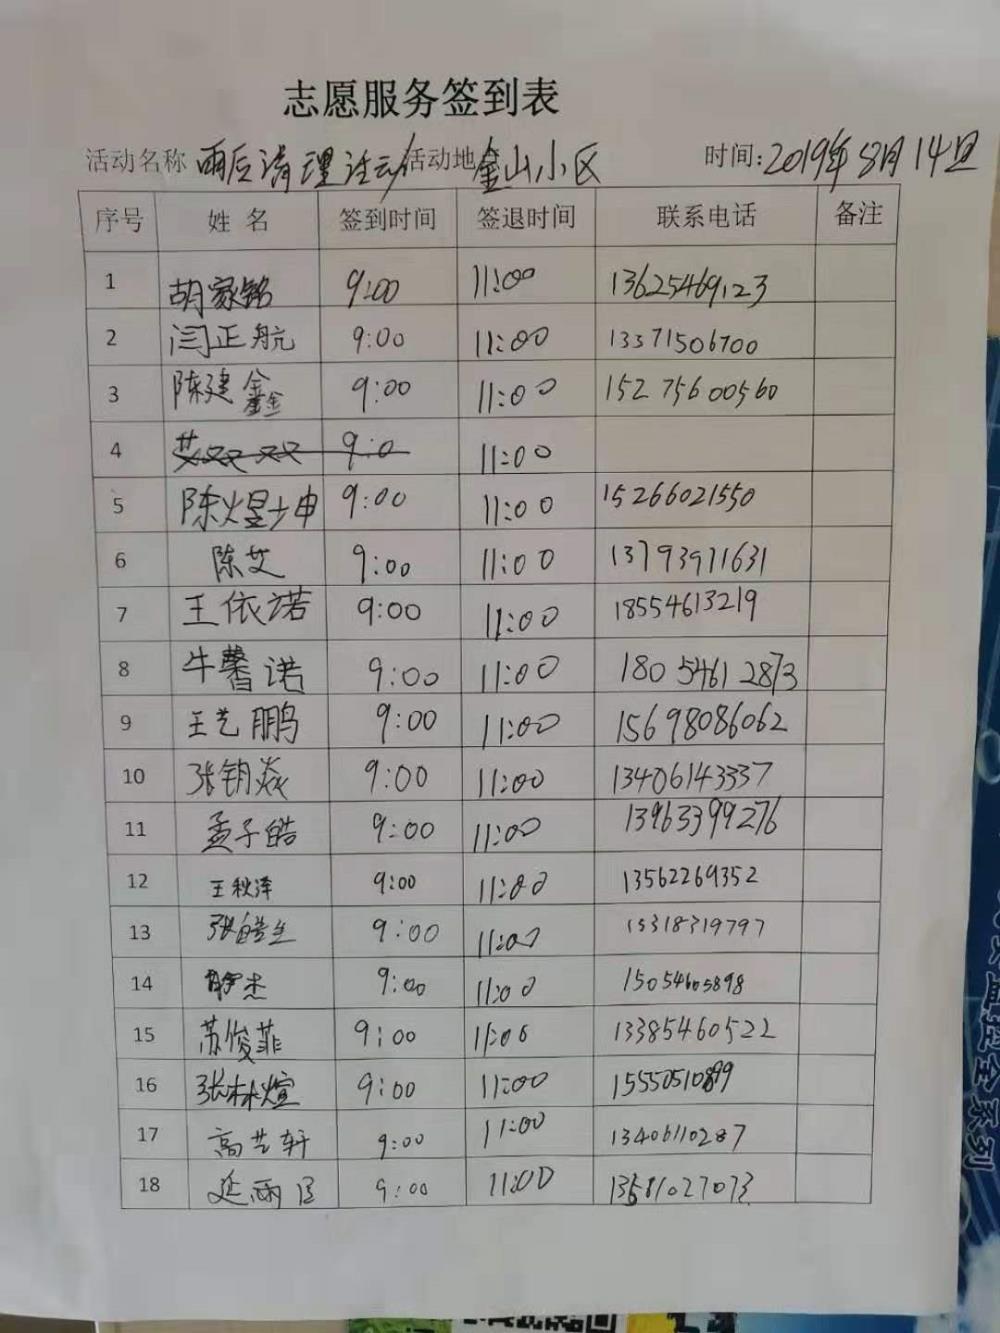 志愿服务签到表
活动名称 雨后清理活动 活动地 金山小区 时间:2019年8月14日
序号 姓名 签到时间 签退时间 联系电话 备注
1 胡家铭 9:00 11:00 13625469123
2 闫正航 9:00 11:00 13371506700
3 陈建鑫 9:00 11:00 15275600560
4 艾双双 9:0 11:00
5 陈煜坤 9:00 11:00 15266021550
6 陈艾 9:00 11:00 13793971631
7 王依诺 9:00 11:00 18554613219
8 牛馨诺 9:00 11:00 18054612873
9 王艺鹏 9:00 11:00 15698086062
10 张钥焱 9:00 11:00 13406143337
11 孟子皓 9:00 11:00 13963399276
12 王秋泽 9:00 11:00 13562269352
13 张皓 9:00 11:00 15318319797
14 杰 9:00 11:00 15054605898
15 苏俊菲 9:00 11:00 13385460522
16 张林煊 9:00 11:00 15550510899
17 高艺轩 9:00 11:00 13406110287
18 延雨 9:00 11:00 13581027073
监控全系列